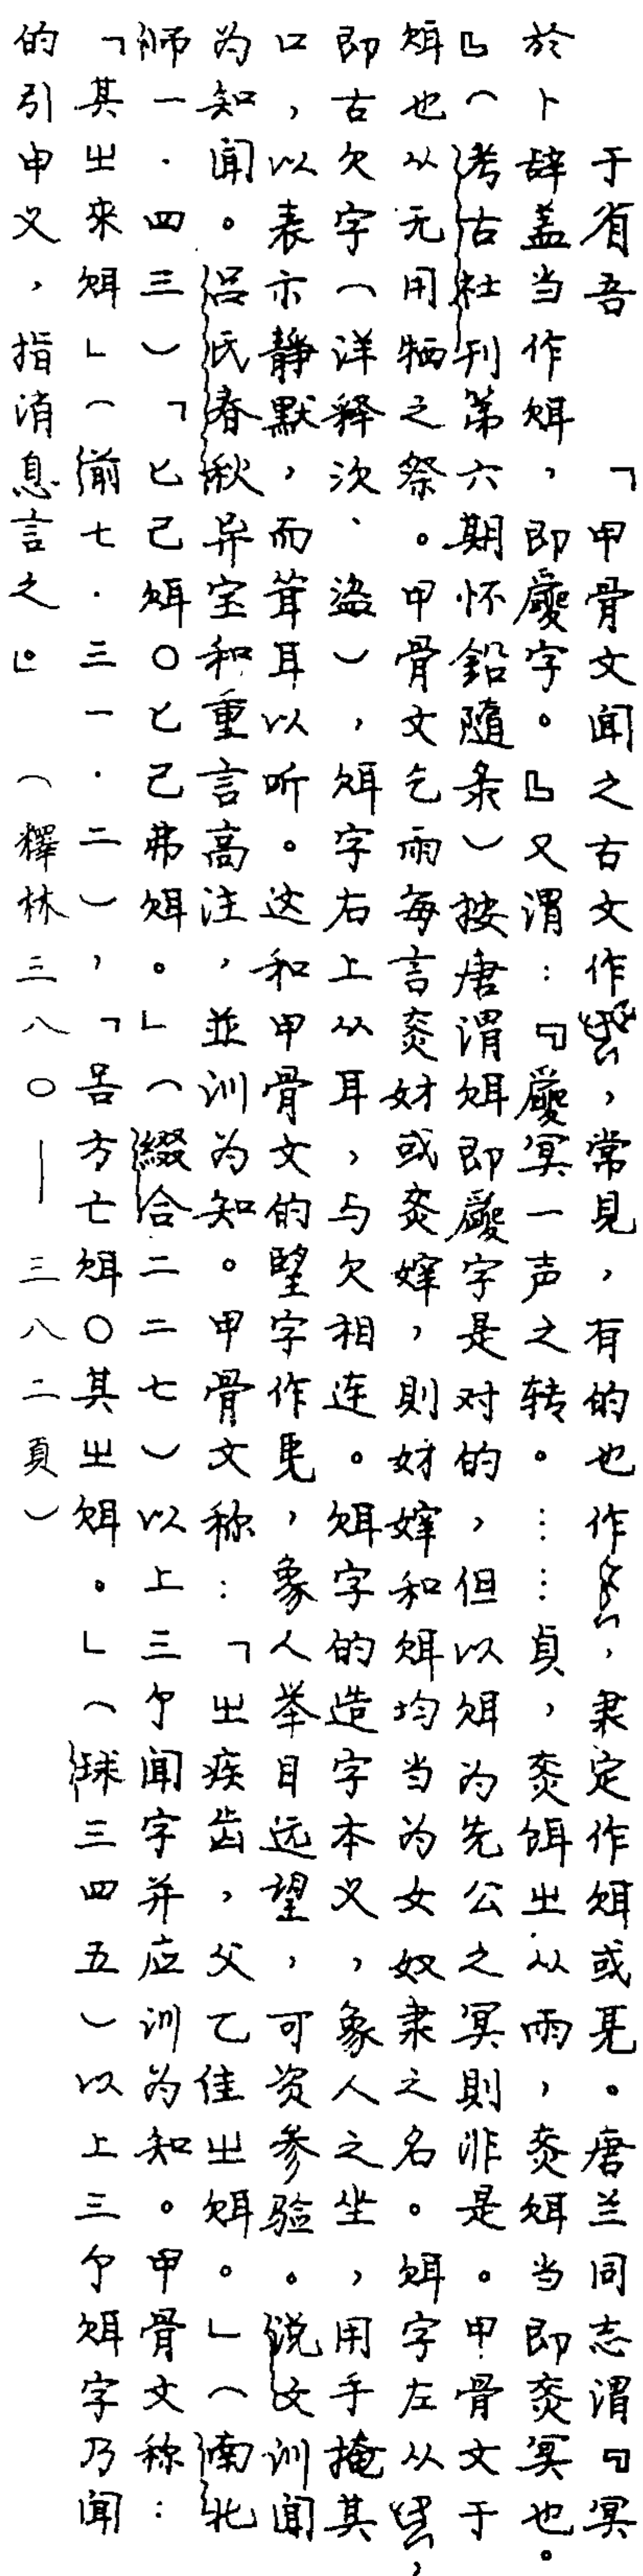 于省吾 「甲骨文闻之古文作，常見，有的也作，隶定作或。唐兰同志谓『冥
於卜辞盖当作，即字。』又谓：『冥一声之转。……貞，烄㞢从雨，烄当即烄冥也。
』（考古社刊第六期怀鉛隨录）按唐谓即字是对的，但以为先公之冥則非是。甲骨文于
也从无用牺之祭。甲骨文乞雨每言烄或烄，則和均当为女奴隶之名。字左从，
即古欠字（洋释次、盗），字右上从耳，与欠相连。字的造字本义，象人之坐，用手掩其
口，以表示靜默，而耸耳以听。这和甲骨文的朢字作，象人举目远望，可资参验。说文训闻
为知闻。吕氏春秋异宝和重言高注，並训为知。甲骨文称：「㞢疾齿，父乙佳㞢。」（南北
师一·四三）「匕己〇匕己弗。」（綴合二二七）以上三个闻字并应训为知。甲骨文称：
「其㞢來」（前七·三一·二），「方亡〇其㞢。」（球三四五）以上三个字乃闻
的引申义，指消息言之」。（釋林三八〇—三八二頁）